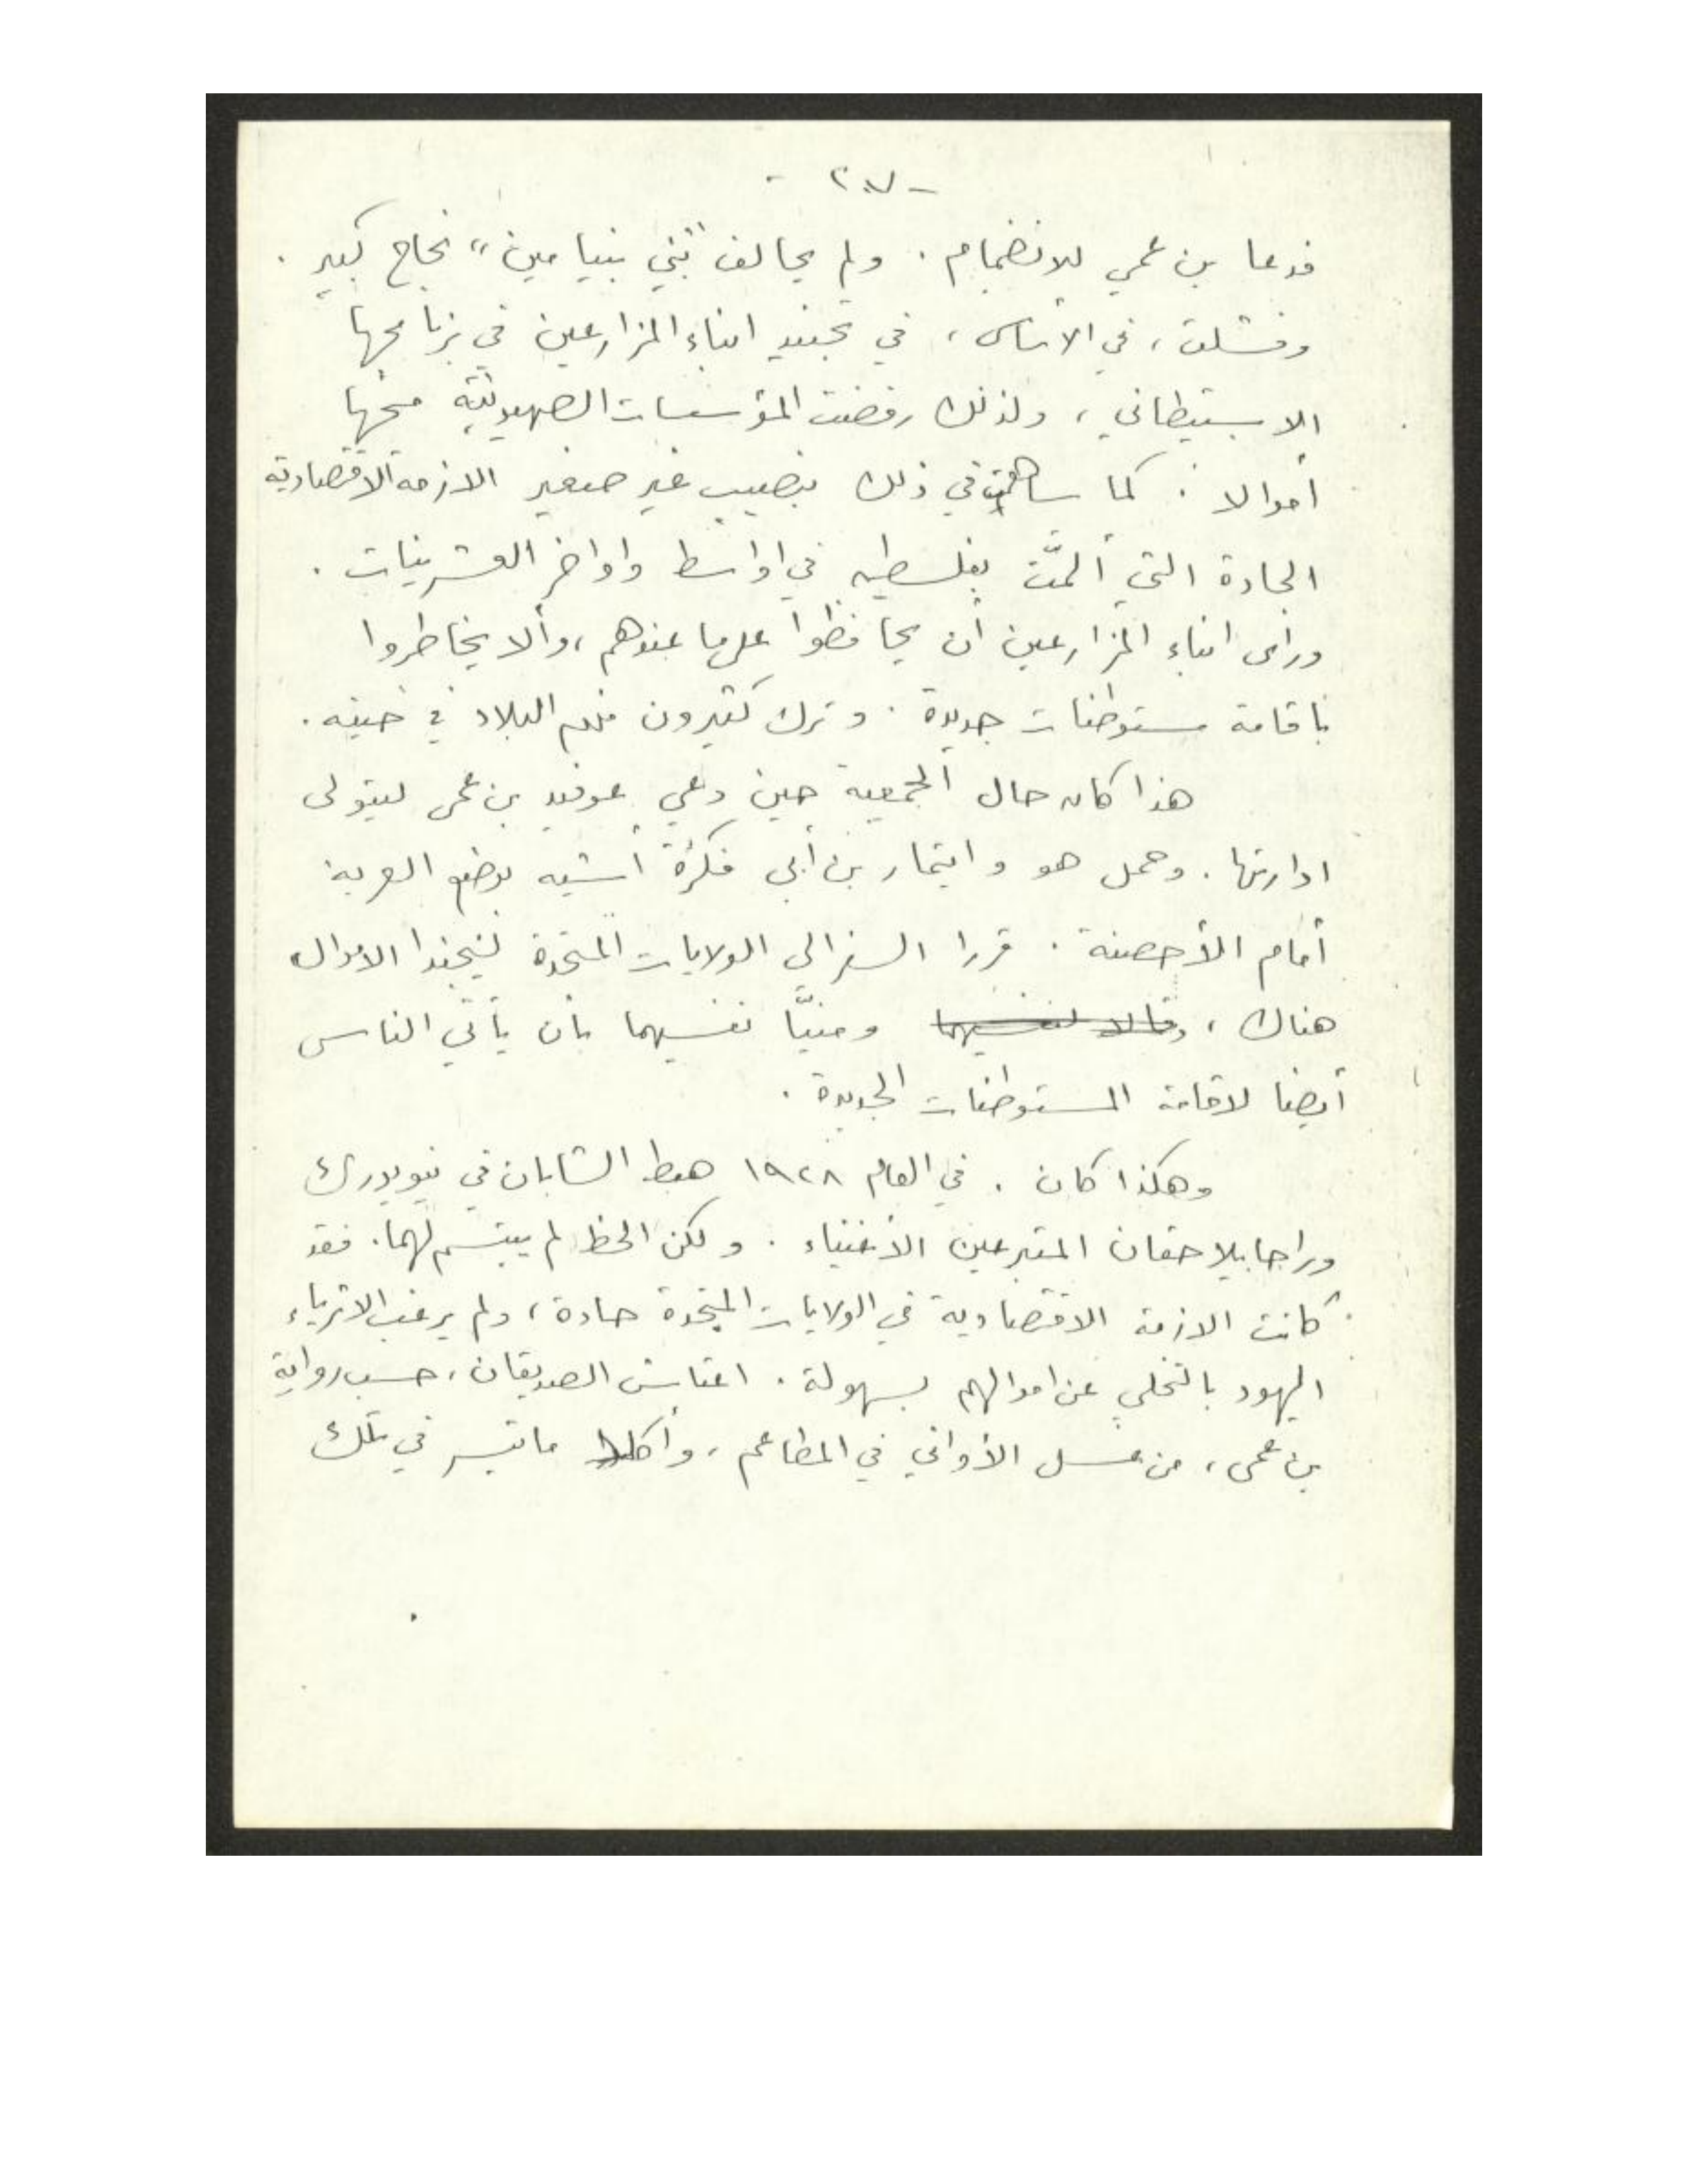 فدعا بن عمي للانضمام . ولم يحالف "بني بنيامين" نجاح كبير .
وفشلت ، في الأساس ، في تجنيد ابناء المزارعين في برنامجها
الاستيطاني ، ولذلك رفضت المؤسسات الصهيونية منحها
أموالا . كما ساهمت في ذلك بنصيب غير صغير الازمة الاقتصادية
الحادة التي ألمّت بفلسطين في اواسط واواخر العشرينات .
ورأى ابناء المزارعين أن يحافظوا على ما عندهم ، وألا يخاطروا
باقامة مستوطنات جديدة . وترك كثيرون منهم البلاد في حينه .
هذا كان حال الجمعية حين دعي عوفيد بن عمي ليتولى
ادارتها . وحمل هو وايتمار بن أبي فكرة أشبه بوضع العربة
أمام الأحصنة . قررا السفر الى الولايات المتحدة ليجندا الاموال
هناك ، وقالا لنفسيهما ومنيّا نفسيهما بأن يأتي الناس
أيضا لاقامة المستوطنات الجديدة .
وهكذا كان . في العام ١٩٢٨ هبط الشابان في نيويورك
وراحا يلاحقان المتبرعين الأغنياء . ولكن الحظ لم يبتسم لهما . فقد
كانت الازمة الاقتصادية في الولايات المتحدة حادة ، ولم يرغب الاثرياء
اليهود بالتخلي عن اموالهم بسهولة . اعتاش الصديقان ، حسب رواية
بن عمي ، من غسل الأواني في المطاعم ، وأكلا ما تيسر في تلك